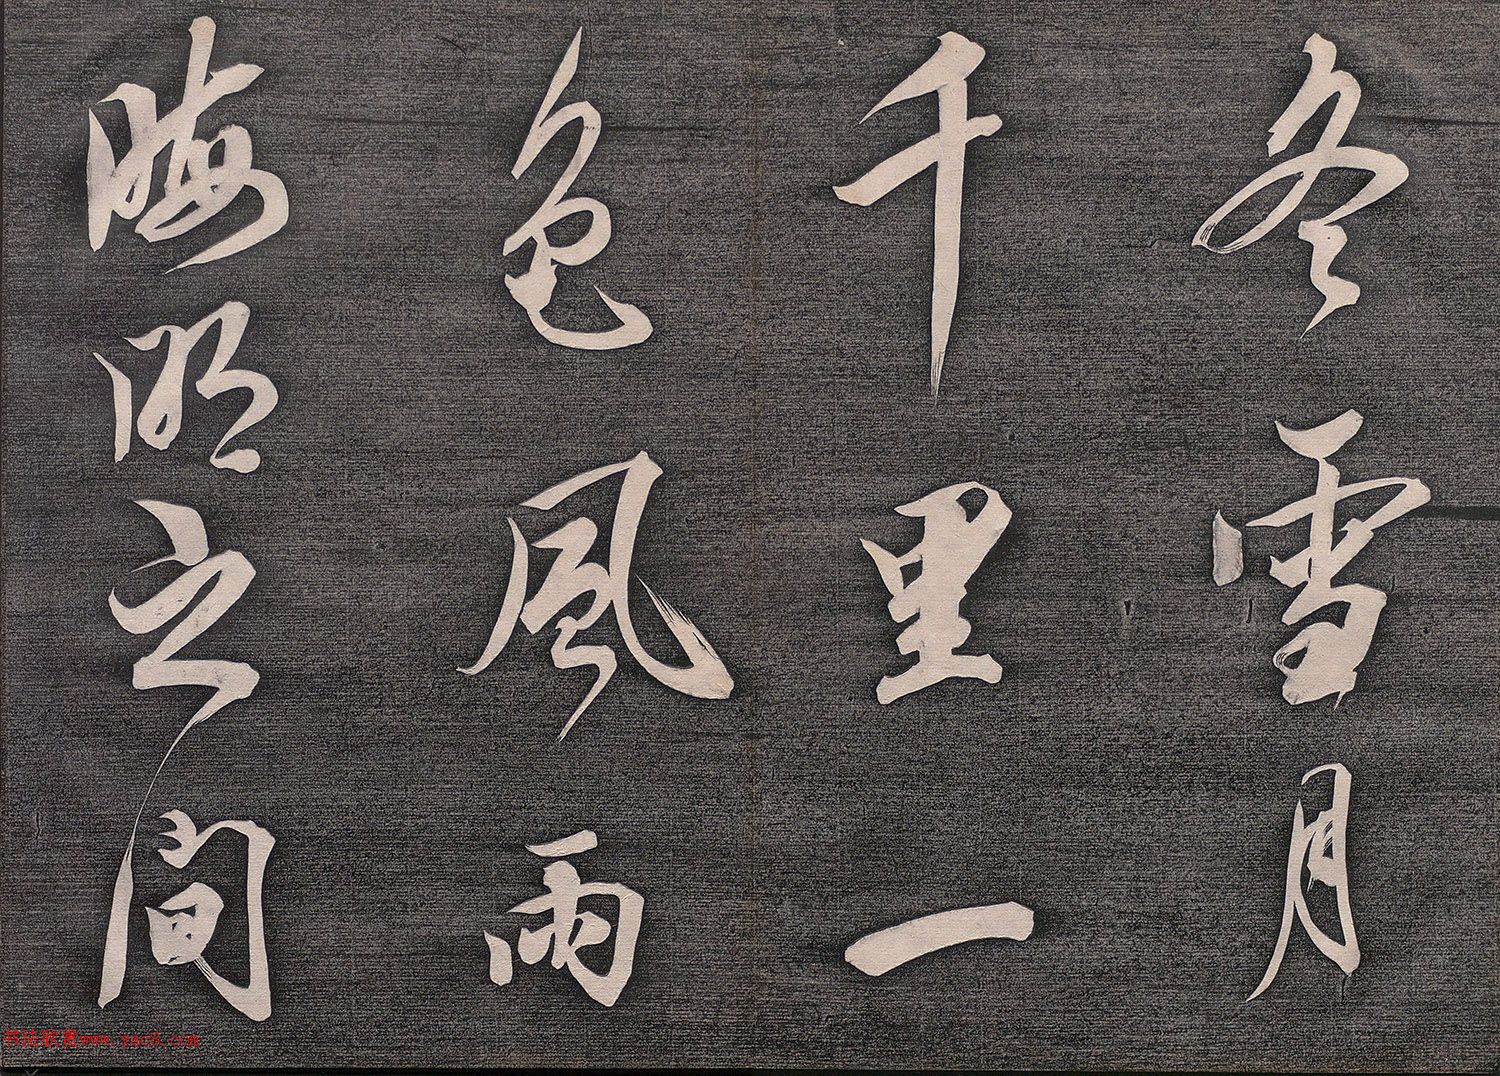 冬雪月
千里一
色風雨
晦明之間
书法欣赏www.yac8.com